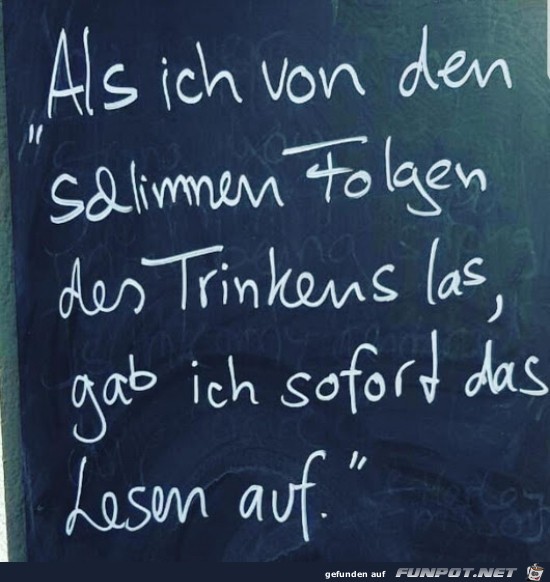 „Als ich von den
schlimmen Folgen
des Trinkens las,
gab ich sofort das
Lesen auf."
gefunden auf FUNPOT.NET